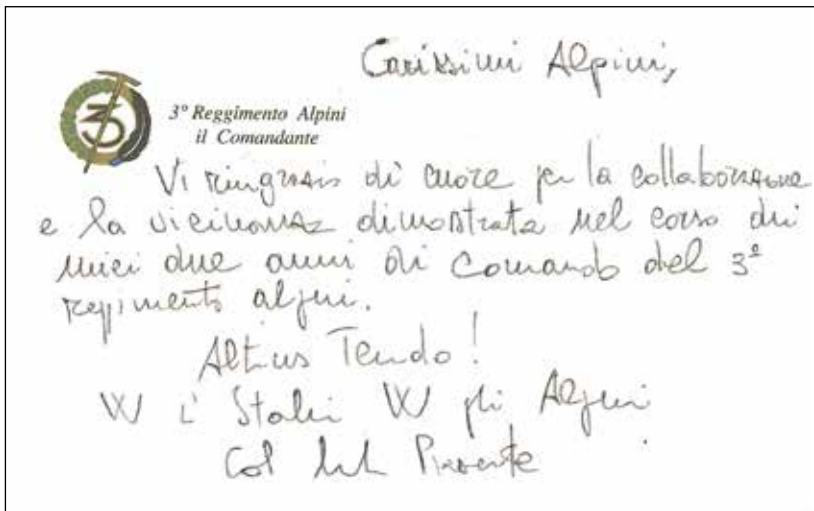 Carissimi Alpini,
3
3° Reggimento Alpini
il Comandante
Vi ringrazio di cuore per la collaborazione
e la vicinanza dimostrata nel corso dei
miei due anni di Comando del 3°
reggimento alpini.
Altius Tendo!
W l'Italia W gli Alpini
Col